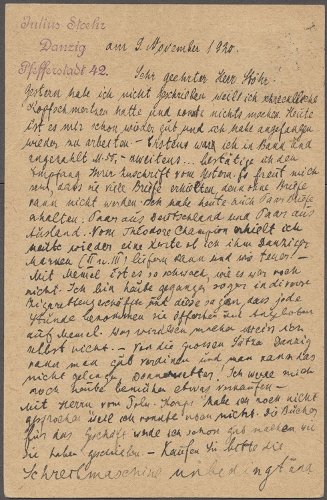 Julius Stoehr
Danzig
Pfefferstadt 42.
am 9. November 1920.
Sehr geehrter Herr Stöhr.
Gestern habe ich nicht geschrieben weil ich schreckliche
Kopfschmerzen hatte und konnte nichts machen. Heute
ist es mir schon wieder gut und ich habe angefangen
wieder zu arbeiten. – Erstens war ich in Bank und
eingezahlt – zweitens bestätige ich den
Empfang Ihrer Zuschrift vom Gestern. Es freut mich
sehr, dass sie viele Briefe erhielten, denn ohne Briefe
kann nicht werden. Ich habe heute auch Paar Briefe
erhalten. Paar aus Deutschland und Paar aus
Ausland. Vom Theodore Champion erhielt ich
heute wieder eine Karte ob ich ihm Danziger
Marken (II u. III) liefern kann und wie teuer! –
Mit Memel ist es so schwach, wie es war noch
nicht. Ich bin heute gegangen sogar in diverse
Zigarettengeschäfte und diese sagen, dass jede
Stunde bekommen sie Offerten und Angeboten
auf Memel. Was wird man machen weiss
selbst nicht. – Von die grossen Sätze Danzig
kann man gut verdienen und man kann das
nicht gelingen Donnerwetter! Ich werde mich
noch heute bemühen etwas verkaufen –
Mit Herrn vom habe ich noch nicht
gesprochen weil ich konnte nicht. Die Bücher
für das Geschäft werde ich schon gut machen wie
sie haben geschrieben. – Kaufen Sie bitte die
Schreibmaschine unbedingt